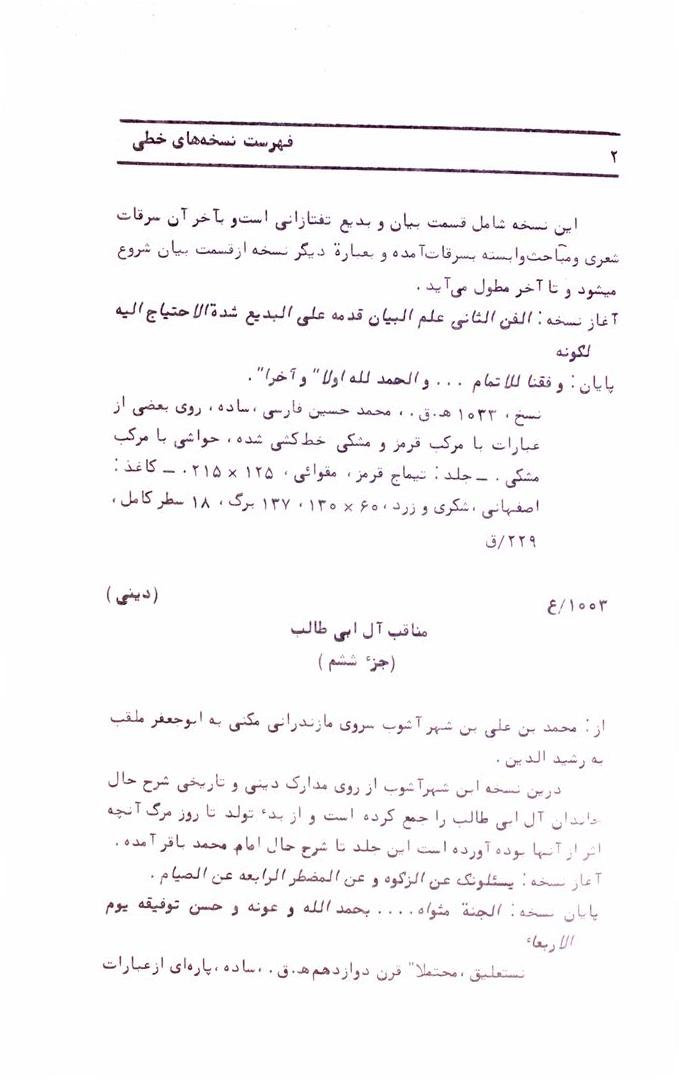 ۲
فهرست نسخه‌های خطی
این نسخه شامل قسمت بیان و بدیع تفتازانی است و بآخر آن سرقات
شعری ومباحث‌وابسته بسرقات‌آمده و بعبارة دیگر نسخه ازقسمت بیان شروع
میشود و تا آخر مطول می‌آید .
آغاز نسخه : الفن الثانی علم البیان قدمه علی البدیع شدة الاحتیاج الیه
لکونه
پایان : و فقنا للاتمام ... والحمد لله اولا" و آخرا" .
نسخ ، ۱۰۳۳ ه‍.ق . ، محمد حسین فارسی ،ساده ، روی بعضی از
عبارات با مرکب قرمز و مشکی خط‌کشی شده ، حواشی با مرکب
مشکی . ــ جلد : تیماج قرمز ، مقوائی ، ۱۲۵ × ۲۱۵ . ــ کاغذ :
اصفهانی ،شکری و زرد ، ۶۰ × ۱۳۰ ، ۱۳۷ برگ ، ۱۸ سطر کامل ،
۲۲۹/ق
۱۰۰۳/ع
(دینی)
مناقب آل ابی طالب
(جزء ششم)
از : محمد بن علی بن شهرآشوب سروی مازندرانی مکنی به ابوجعفر ملقب
به رشید الدین .
درین نسخه ابن شهرآشوب از روی مدارک دینی و تاریخی شرح حال
خاندان آل ابی طالب را جمع کرده است و از بدء تولد تا روز مرگ آنچه
اثر از آنها بوده آورده است این جلد تا شرح حال امام محمد باقر آمده .
آغاز نسخه : یسئلونک عن الزکوه و عن المضطر الرابعه عن الصیام .
پایان نسخه : الجنة مثواه .... بحمد الله و عونه و حسن توفیقه یوم
الاربعاء
نستعلیق ،محتملا" قرن دوازدهم ه‍.ق . ،ساده ، پاره‌ای ازعبارات